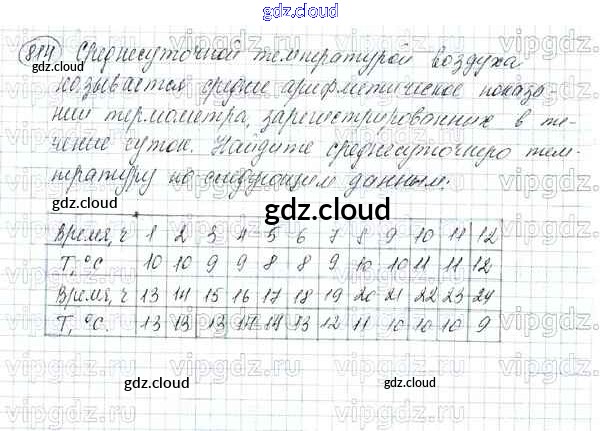 gdz.cloud
814 Среднесуточной температурой воздуха
gdz.cloud называется средние арифметическое показа- gdz.cloud
ний термометра, зарегистрированних в те-
чение суток. Найдите среднесуточнеро тем-
пратуру по следующим данным:
gdz.cloud
Время, ч 1 2 3 4 5 6 7 8 9 10 11 12
T, °C 10 10 9 9 8 8 9 9 10 10 11 11 12
Время, ч 13 14 15 16 17 18 19 20 21 22 23 24
T, °C. 13 13 13 14 14 13 12 11 10 10 10 9
gdz.cloud gdz.cloud